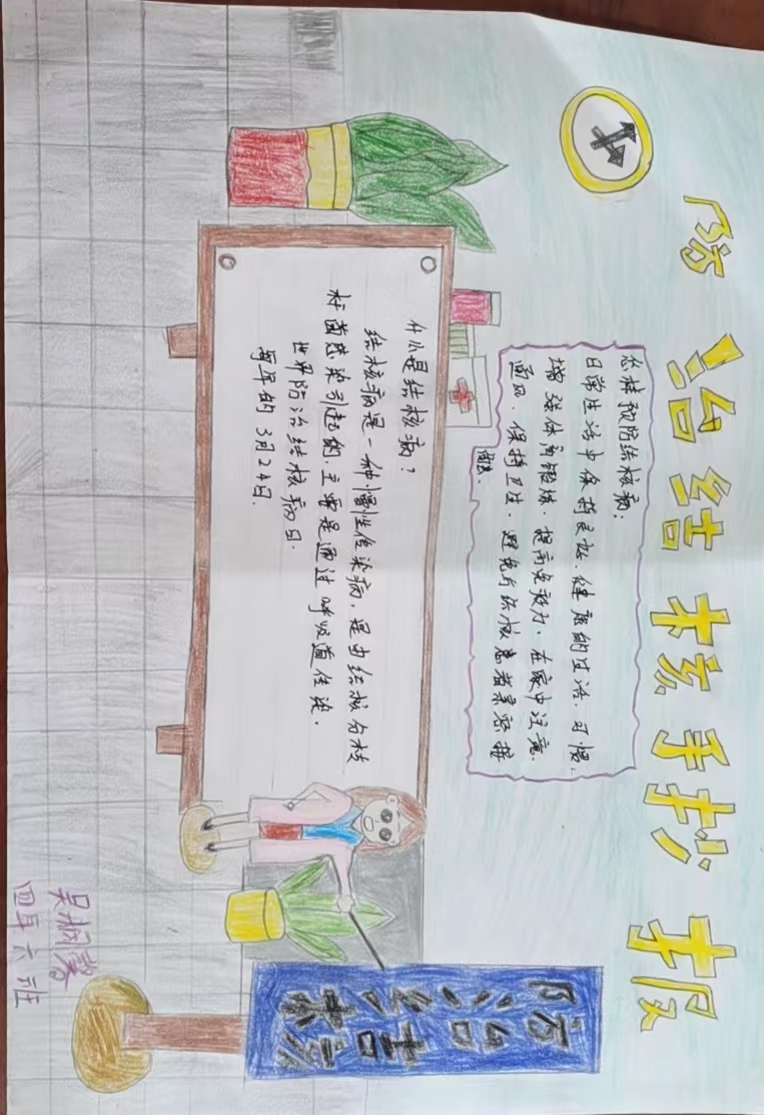 防治结核手抄报
怎样预防结核病：
日常生活中保持良好、健康的生活习惯、
增强体育锻炼、提高免疫力、在家中注意
通风、保持卫生、避免与结核患者亲密接
触。
什么是结核病？
结核病是一种慢性传染病，是由结核分枝
杆菌感染引起的，主要是通过呼吸道传染。
世界防治结核病日.
每年的3月24日.
防治结核
四年六班